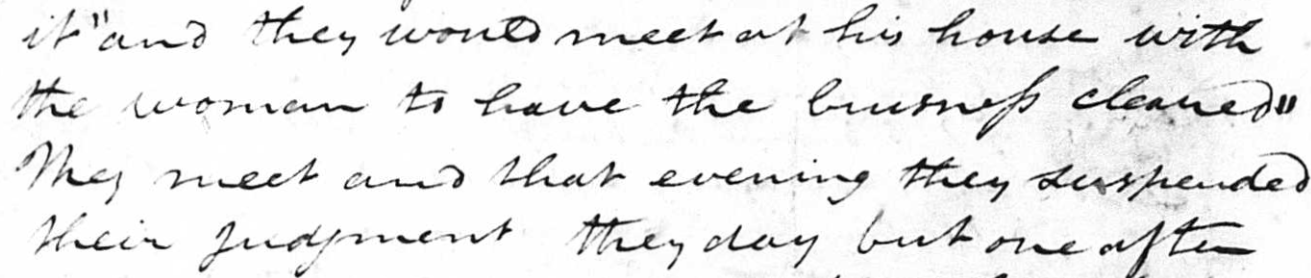 it" and they would meet at his house with
the woman to have the busness cleared"
They meet and that evening they suspended
their judgment they day but one after